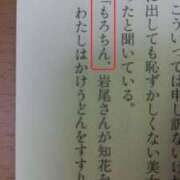 こういっては申し訳ない
に出しても恥ずかしくない美
ったと聞いている。
「もろちん、岩尾さんが知花
わたしはかけうどんをすすり